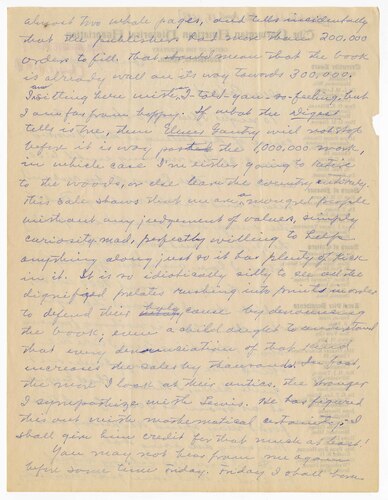 almost two whole pages, and tells incidentally
that the publishing house has 200,000
orders to fill. That should mean that the book
is already well on its way towards 300,000.
I'm sitting here with "I told you so" feeling, but
I am far from happy. If what the Digest
tells is true, then Elmer Gantry will not stop
before it is way past the 1,000,000 mark,
in which case I'm either going to retire
to the woods, or else leave the country entirely.
This sale shows that we are a mongrel people
without any judgement of values, simply
curiosity-mad, perfectly willing to help
anything along just so it has plenty of kick
in it. It is so idiotically silly to see all the
dignified prelates rushing into print in order
to defend their cause by denouncing
the book; even a child ought to understand
that every denunciation of that kind
increases the sales by thousands. In fact,
the more I look at their antics, the stronger
I sympathize with Lewis. He has figured
this out with mathematical certainty; I
shall give him credit for that much at least!
You may not hear from me again
before some time Friday. Friday I shall